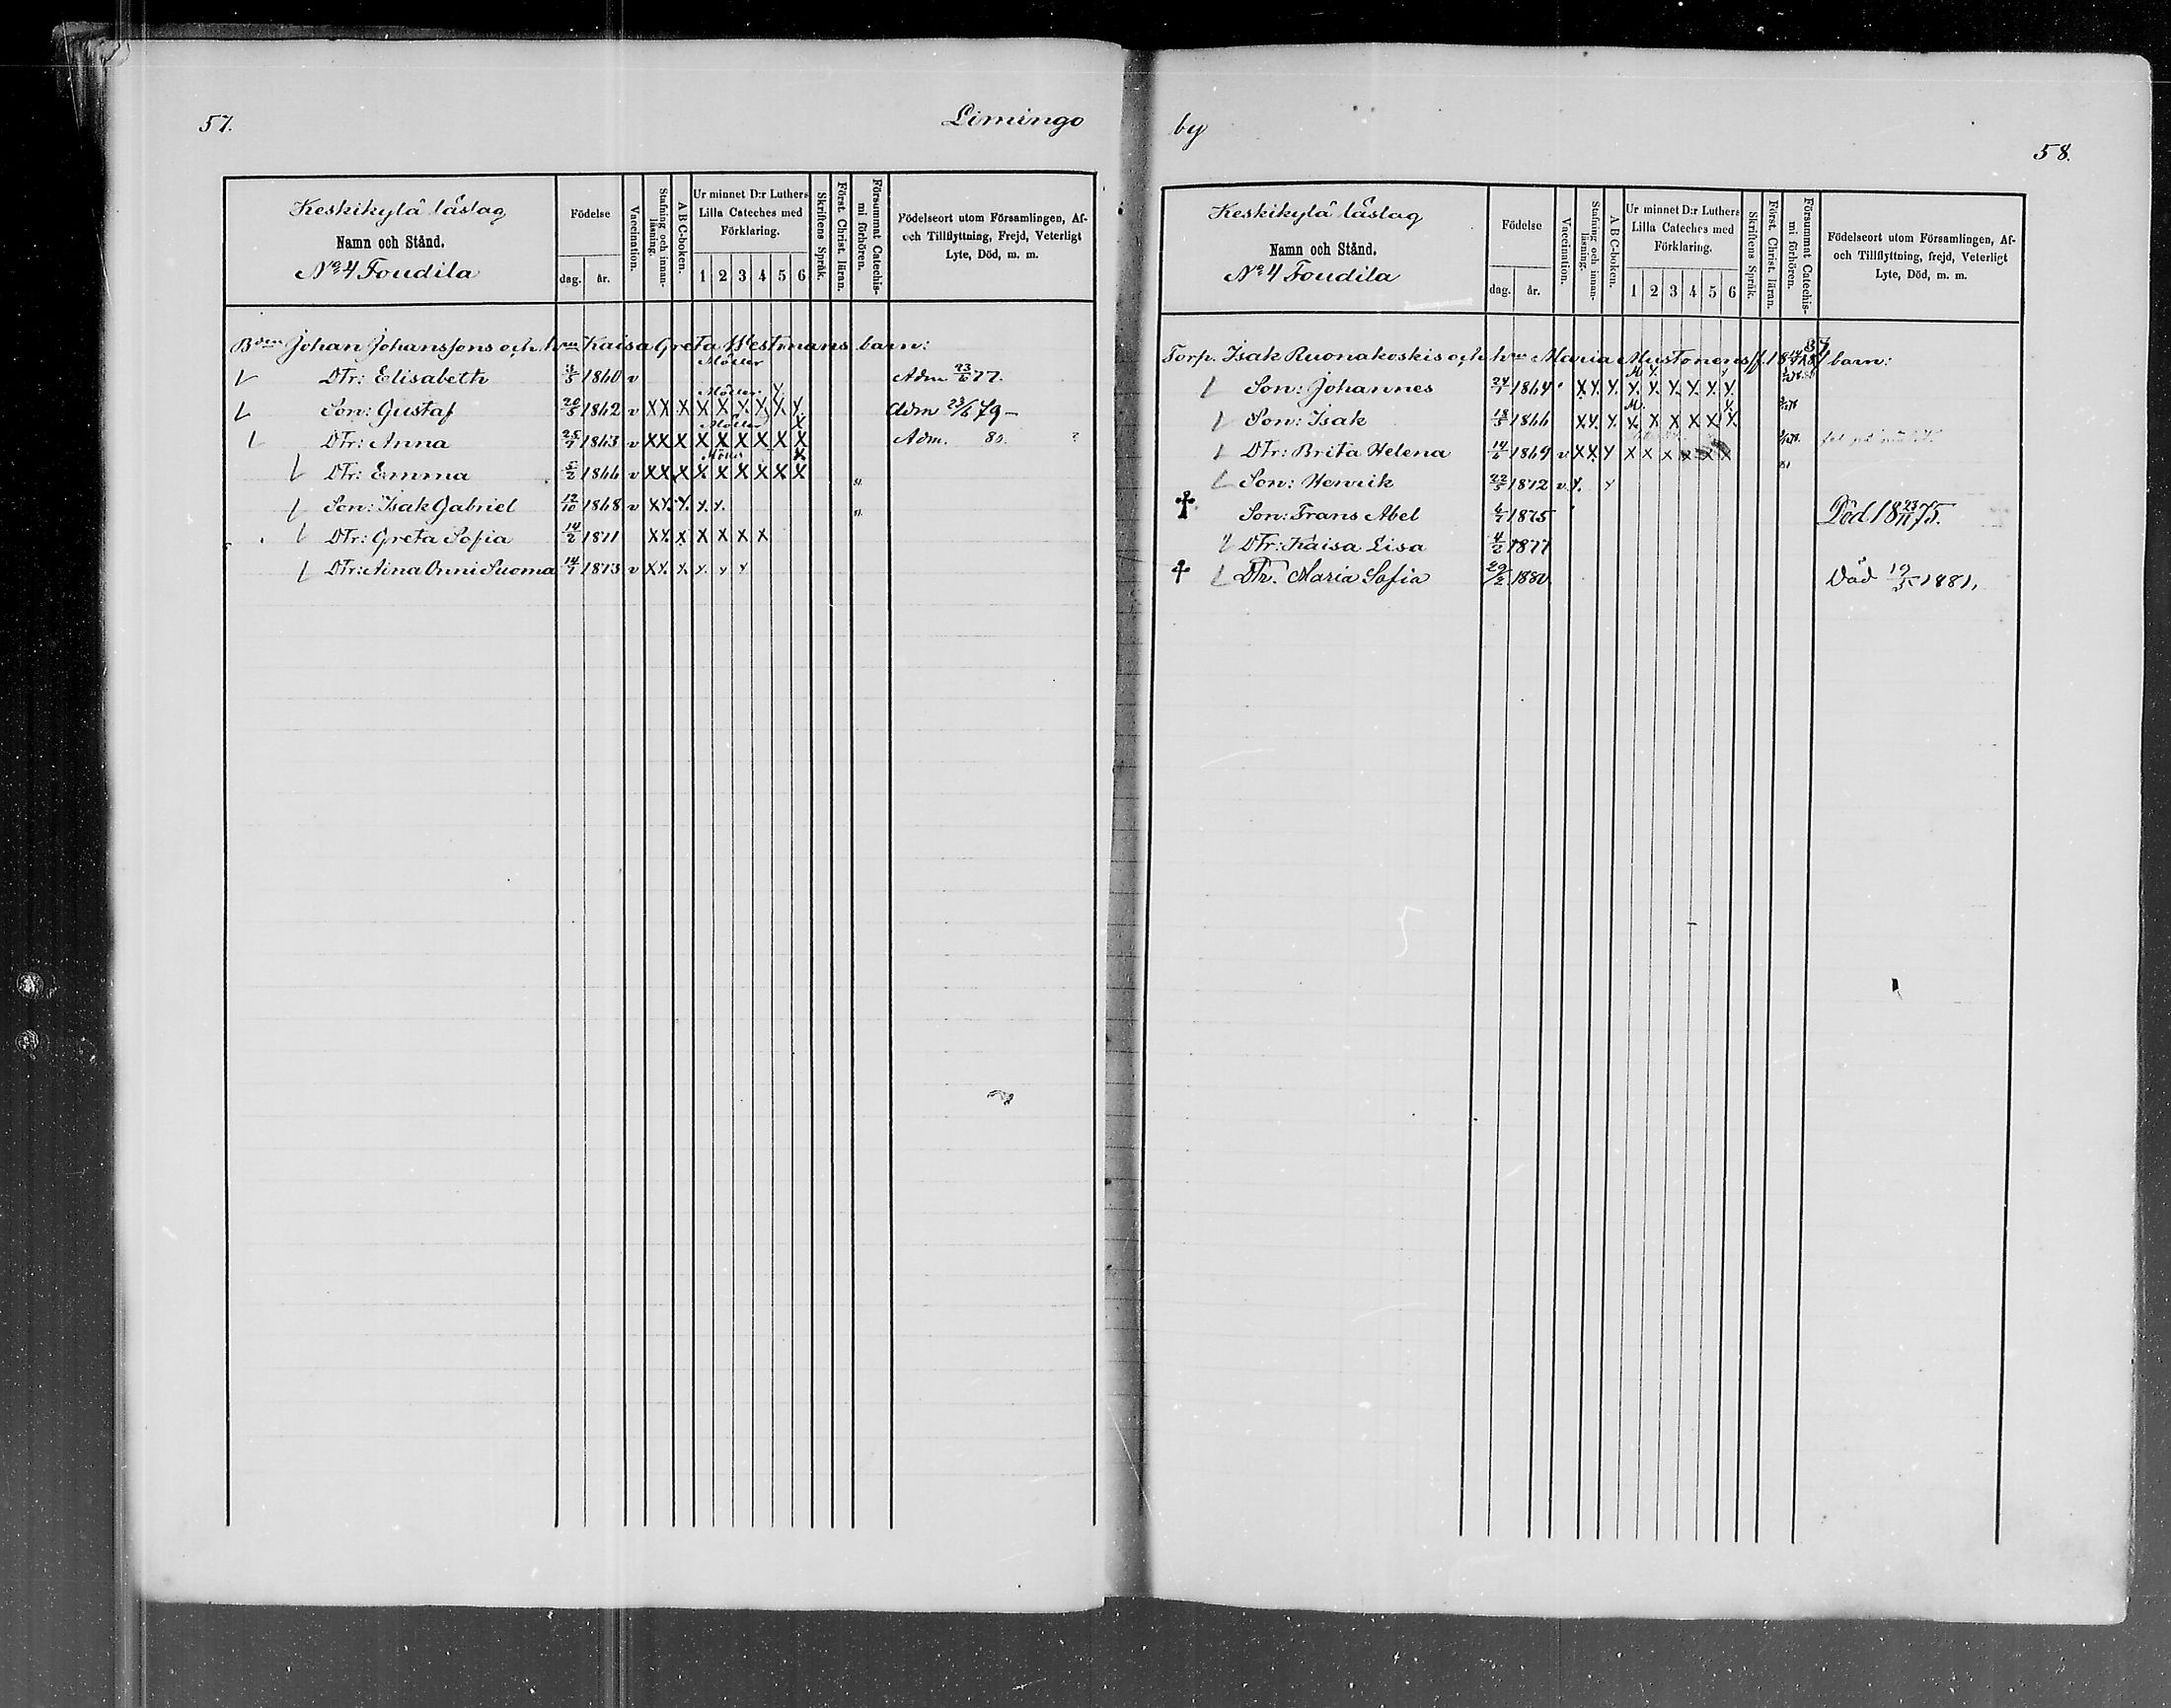 57.
Limingo
Keskikylä läslag
Namn och Stånd.
No 4 Foudila
Födelse
dag.
år.
Vaccination.
Stafning och innan-läsning.
A B C-boken.
Ur minnet D:r Luthers
Lilla Cateches med
Förklaring.
1 2 3 4 5 6
Skriftens Språk.
Först. Christ. läran.
Försummat Catechis-mi förhören.
Födelseort utom Församlingen, Af-
och Tillflyttning, Frejd, Veterligt
Lyte, Död, m. m.
Bdn Johan Johanssons och hu Kaisa Greta Westmans barn:
Dtr: Elisabeth 1860 v Möller Adm 23/6 77.
Son: Gustaf 20/5 1862 v X X X X X X X X X Möller Adm 23/6 79
Dtr: Anna 25/7 1863 v X X X X X X X X X Möller Adm. 80.
Dtr: Emma 5/2 1866 v X X X X X X X X X
Son: Isak Gabriel 12/10 1868 v X X X X X
Dtr: Greta Sofia 14/2 1871 X X X X X X X
Dtr: Aina Onni Suoma 14/7 1873 v X X X X X X
by
58.
Keskikylä läslag
Namn och Stånd.
No 4 Foudila
Födelse
dag.
år.
Vaccination.
Stafning och innan-läsning.
A B C-boken.
Ur minnet D:r Luthers
Lilla Cateches med
Förklaring.
1 2 3 4 5 6
Skriftens Språk.
Först. Christ. läran.
Försummat Catechis-mi förhören.
Födelseort utom Församlingen, Af-
och Tillflyttning, frejd, Veterligt
Lyte, Död, m. m.
Torp. Isak Ruonakoskis och hu Maria Mustonens barn:
Son: Johannes 24/7 1864 X X X X X X X X X
Son: Isak 18/5 1866 X X X X X X X X X
Dtr: Brita Helena 14/6 1869 v X X X X X X X X X
Son: Henrik 22/5 1872 v X X
Son: Frans Abel 6/7 1875 Död 18 23/11 75.
Dtr: Kaisa Lisa 4/2 1877
Dtr. Maria Sofia 29/2 1880 Död 19/5 1881,